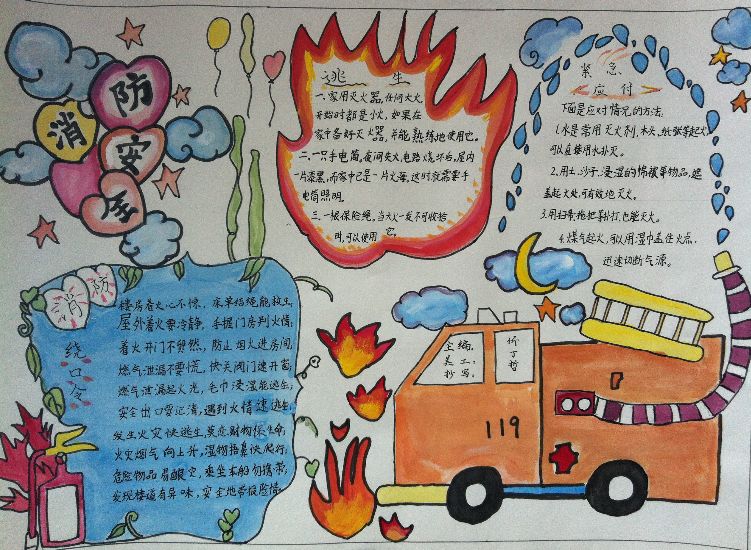 消防安全
逃生
一.家用灭火器,任何大火,
开始时都是小火,如果在
家中备好灭火器,并能熟练地使用它。
二.一只手电筒,夜间失火,电路烧坏后,屋内
一片漆黑,而家中已是一片火海,这时就需要手
电筒照明。
三.一根保险绳,当大火一发不可收拾
时,可以使用它。
紧急
应付
下面是应对情况的方法.
1.水是常用灭火剂,木头、纸张等起火,
可以直接用水扑灭。
2.用土、沙子、浸湿的棉被等物品,遮
盖起火处,可有效地灭火。
3.用扫帚,拖把等扑打,也能灭火。
4.煤气起火,可以用湿巾盖住火点.
迅速切断气源。
消防
绕口令
楼房着火心不惊,床单结绳能救生,
屋外着火要冷静,手握门房判火情,
着火开门不贸然,防止烟火进房间,
燃气泄漏不要慌,快关阀门速开窗,
燃气泄漏起火光,毛巾浸湿能逃生,
安全出口要记清,遇到火情速逃生,
发生火灾快逃生,莫恋财物保生命,
火灾烟气向上升,湿物捂鼻快爬行,
危险物品易酿灾,乘坐车船勿携带,
发现楼道有异味,
主编.
美工:
抄写.
119